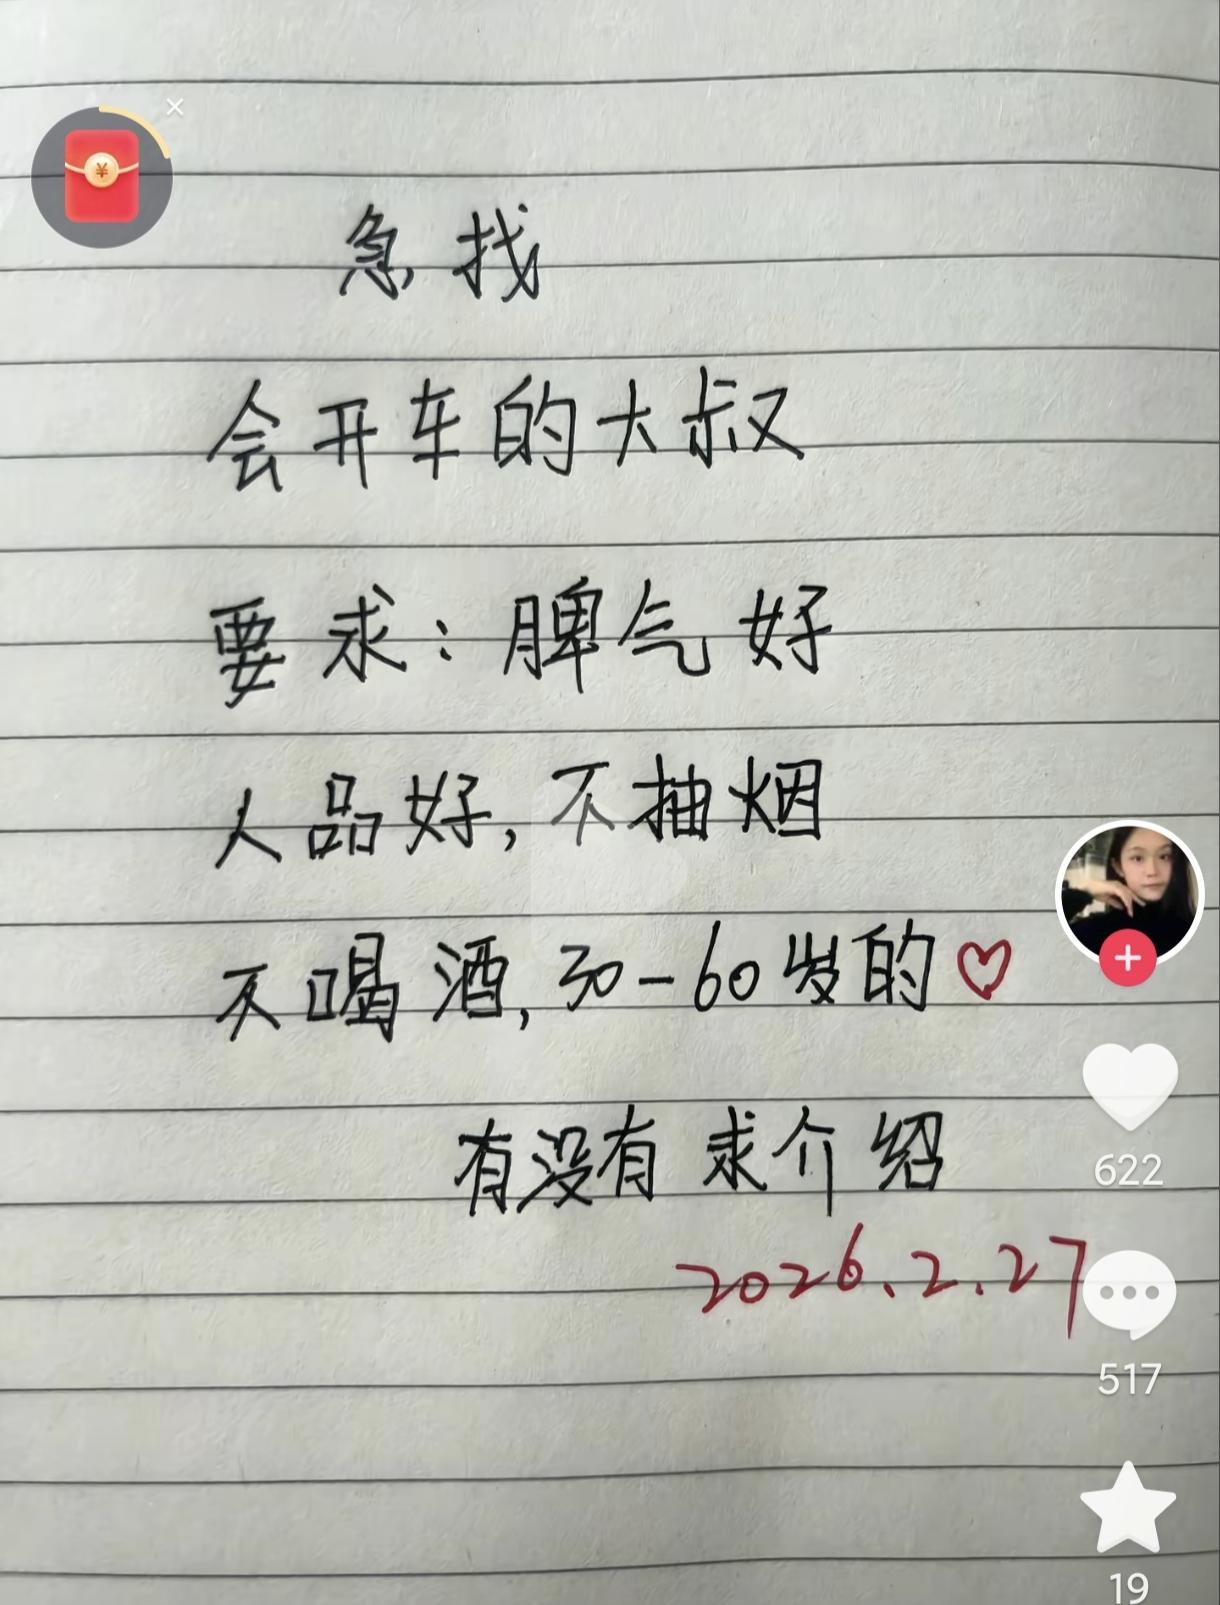 急找
会开车的大叔
要求：脾气好
人品好，不抽烟
不喝酒，30-60岁的♡
有没有 求介绍
2026.2.27
622
517
19